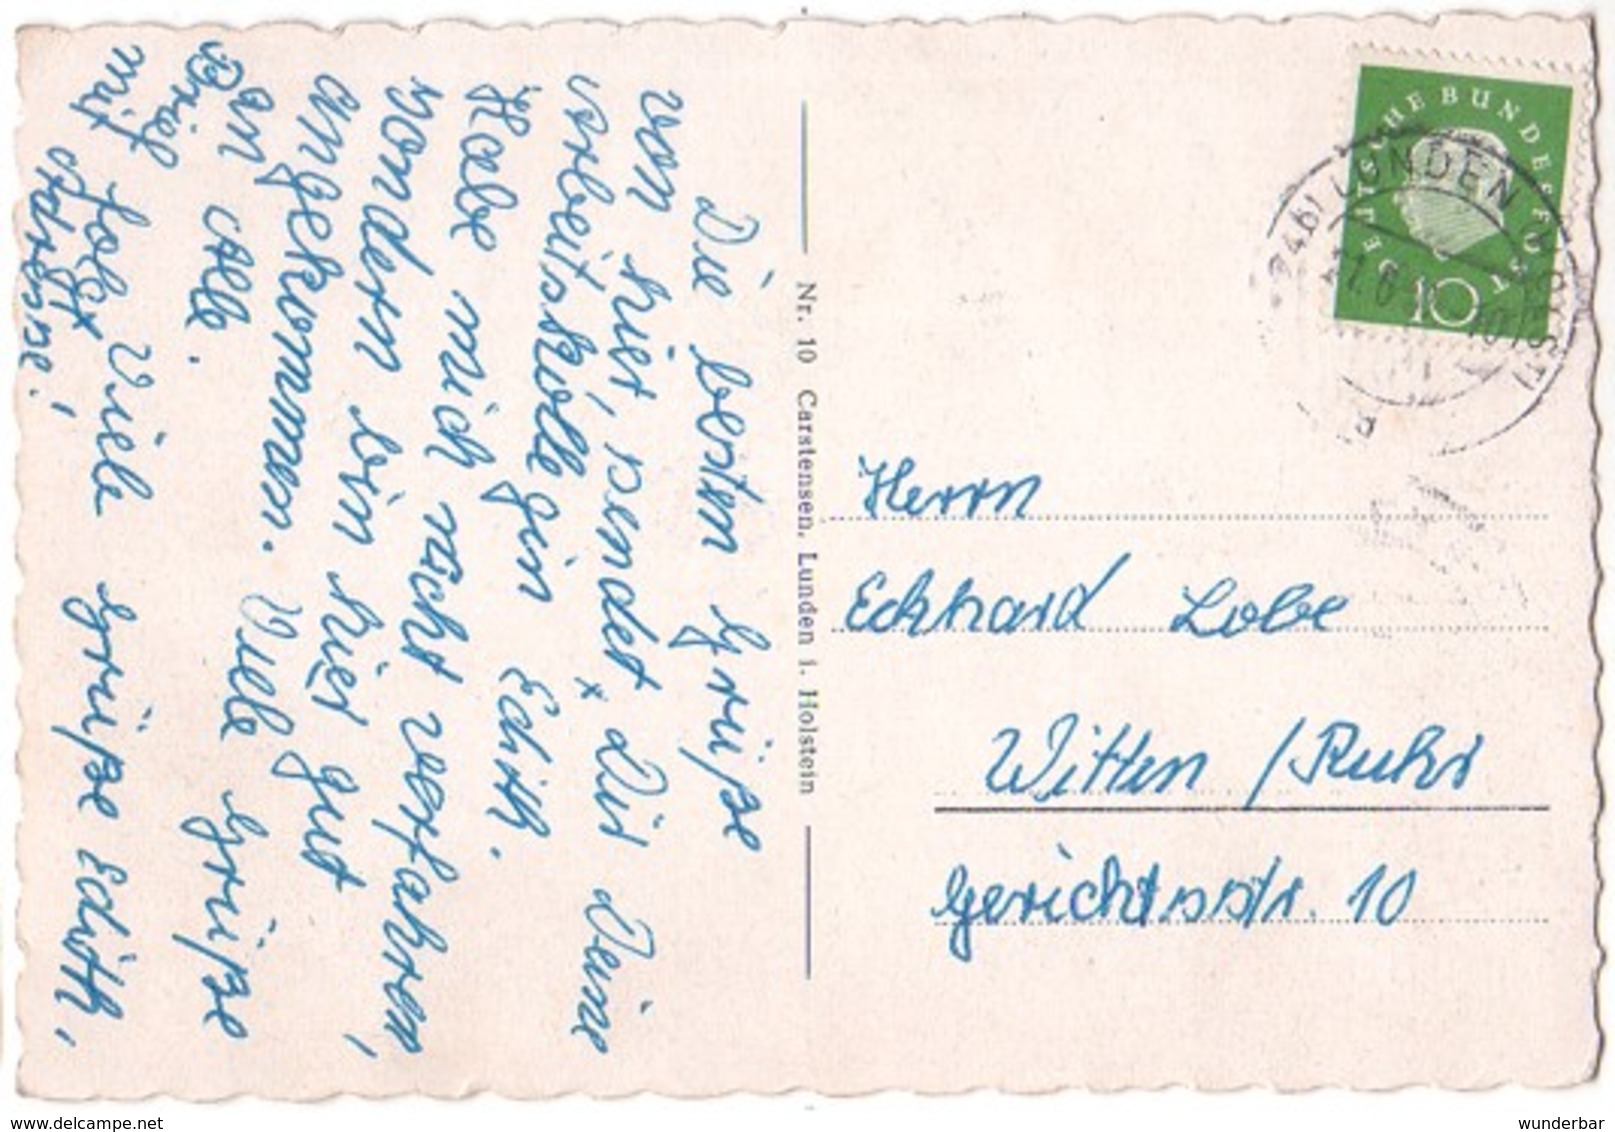 Die besten Grüße
von hier, sendet Dir Deine
Arbeitskollegin Edith.
Habe mich nicht verfahren,
sondern bin hier gut
angekommen. Viele Grüße
an alle.
Brief folgt Viele Grüße Edith,
mit Adresse!
Nr. 10 Carstensen, Lunden i. Holstein
DEUTSCHE BUNDESPOST
10
LUNDEN
Herrn
Eckhard Lobe
Witten / Ruhr
Gerichtsstr. 10
delcampe.net
wunderbar